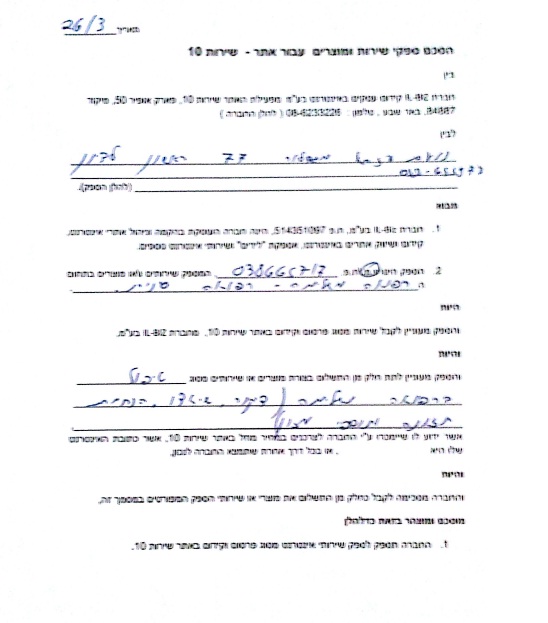 תאריך 26/3
הסכם ספקי שירות ומוצרים עבור אתר - שירות 10
בין
חברת IL-BIZ קידום עסקים באינטרנט בע"מ מפעילת האתר שירות 10, פארק אומר 50, מיקוד
84887, באר שבע , טלפון : 08-6233226 ( להלן החברה )
לבין
77 ראשון לציון
(להלן הספק).
מבוא
1. חברת IL-Biz בע"מ, ח.פ 514351097, הינה חברה העוסקת בהקמה וניהול אתרי אינטרנט,
קידום ושיווק אתרים באינטרנט, אספקת "לידים" ושירותי אינטרנט נוספים.
2. הספק הינו ע.מ/ח.פ 038665717, המספק שירותים ו/או מוצרים בתחום
ה רפואה משלימה - רפואה סינית
היות
והספק מעוניין לקבל שירות מסוג פרסום וקידום באתר שירות 10, מחברת IL-BIZ בע"מ.
והיות
והספק מעוניין לתת חלק מן התשלום בצורת מוצרים או שירותים מסוג טיפול
ברפואה משלימה / דיקור,
תזונה ותוספי מזון
אשר ידוע לו שיימכרו ע"י החברה לצרכנים במחיר מוזל באתר שירות 10, אשר כתובת האינטרנט
שלו היא , או בכל דרך אחרת שתמצא החברה לנכון,
והיות
והחברה מסכימה לקבל כחלק מן התשלום את מוצרי או שירותי הספק המפורטים במסמך זה,
מוסכם ומוצהר בזאת כדלהלן
1. החברה תספק לספק שירותי אינטרנט מסוג פרסום וקידום באתר שירות 10.